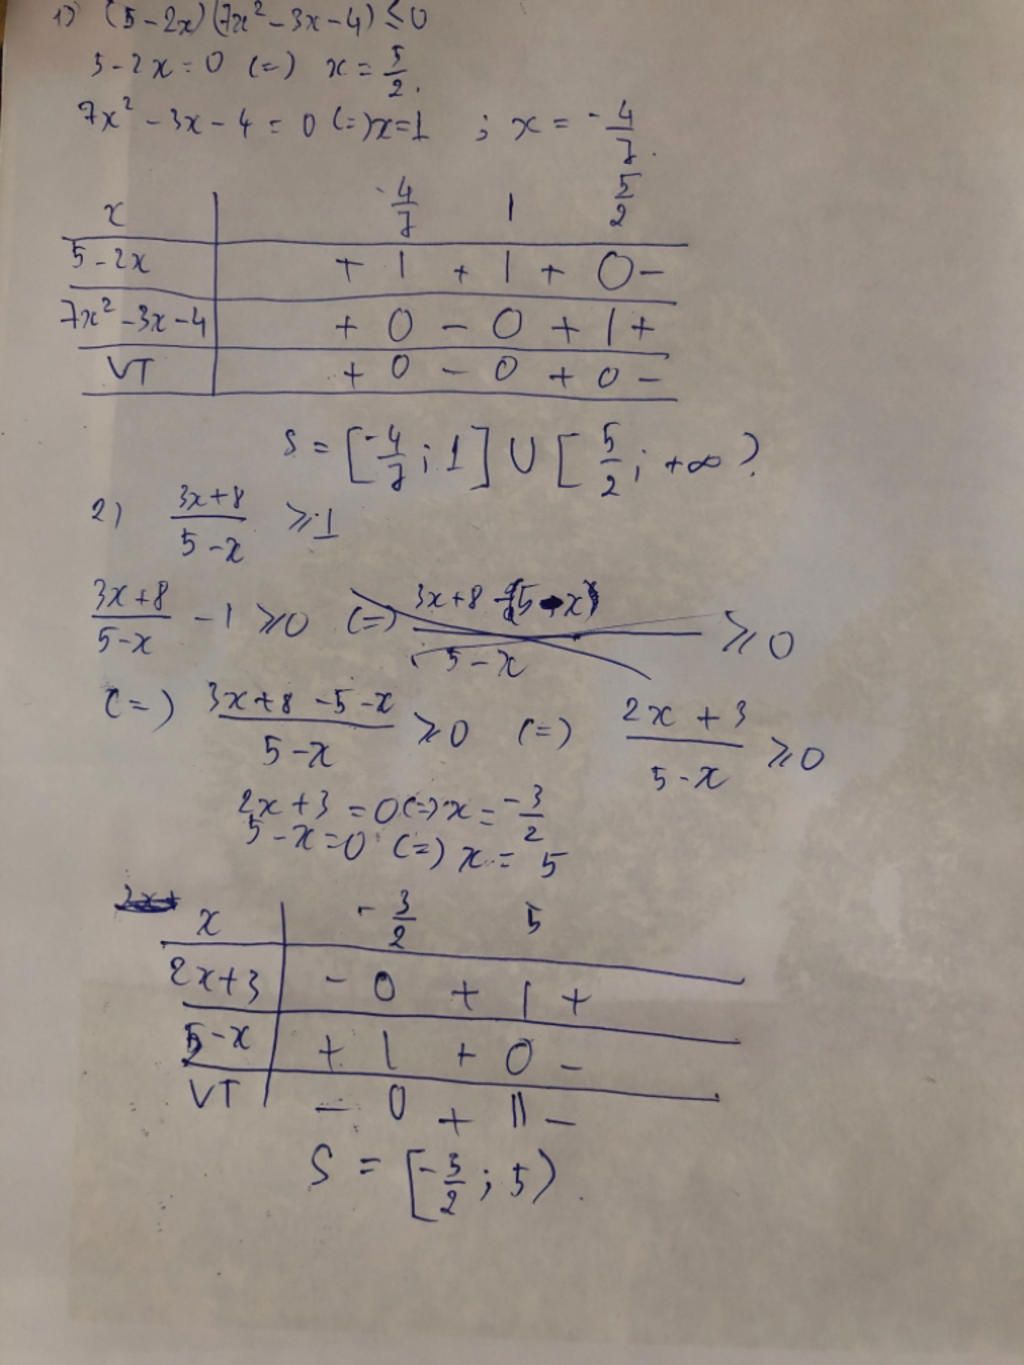 1) (5-2x)(7x² - 3x - 4) ≤ 0
5-2x = 0 (=) x = 5/2.
7x² - 3x - 4 = 0 (=) x=1 ; x = -4/7.
x | -4/7 1 5/2
5-2x | + | + | + 0 -
7x² - 3x - 4 | + 0 - 0 + | +
VT | + 0 - 0 + 0 -
S = [-4/7 ; 1] ∪ [5/2 ; +∞)
2) (3x+8)/(5-x) ≥ 1
(3x+8)/(5-x) - 1 ≥ 0 (=) (3x+8-(5-x))/(5-x) ≥ 0
(=) (3x+8-5-x)/(5-x) ≥ 0 (=) (2x+3)/(5-x) ≥ 0
2x+3 = 0 (=) x = -3/2
5-x = 0 (=) x = 5
2x+
x | -3/2 5
2x+3 | - 0 + | +
5-x | + | + 0 -
VT | - 0 + || -
S = [-3/2 ; 5).